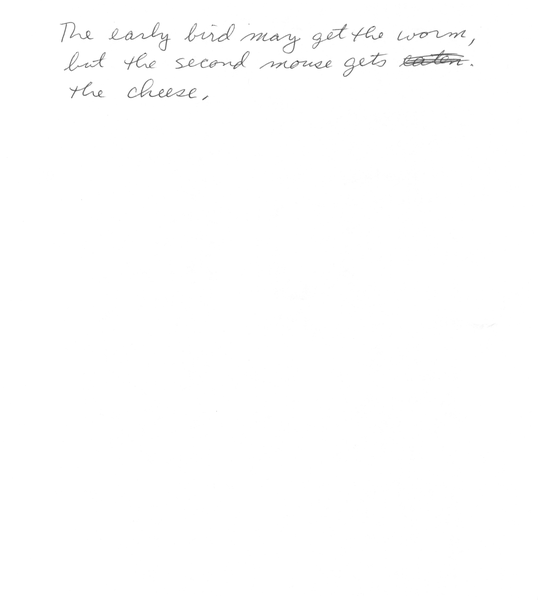 The early bird may get the worm,
but the second mouse gets eaten.
the cheese,